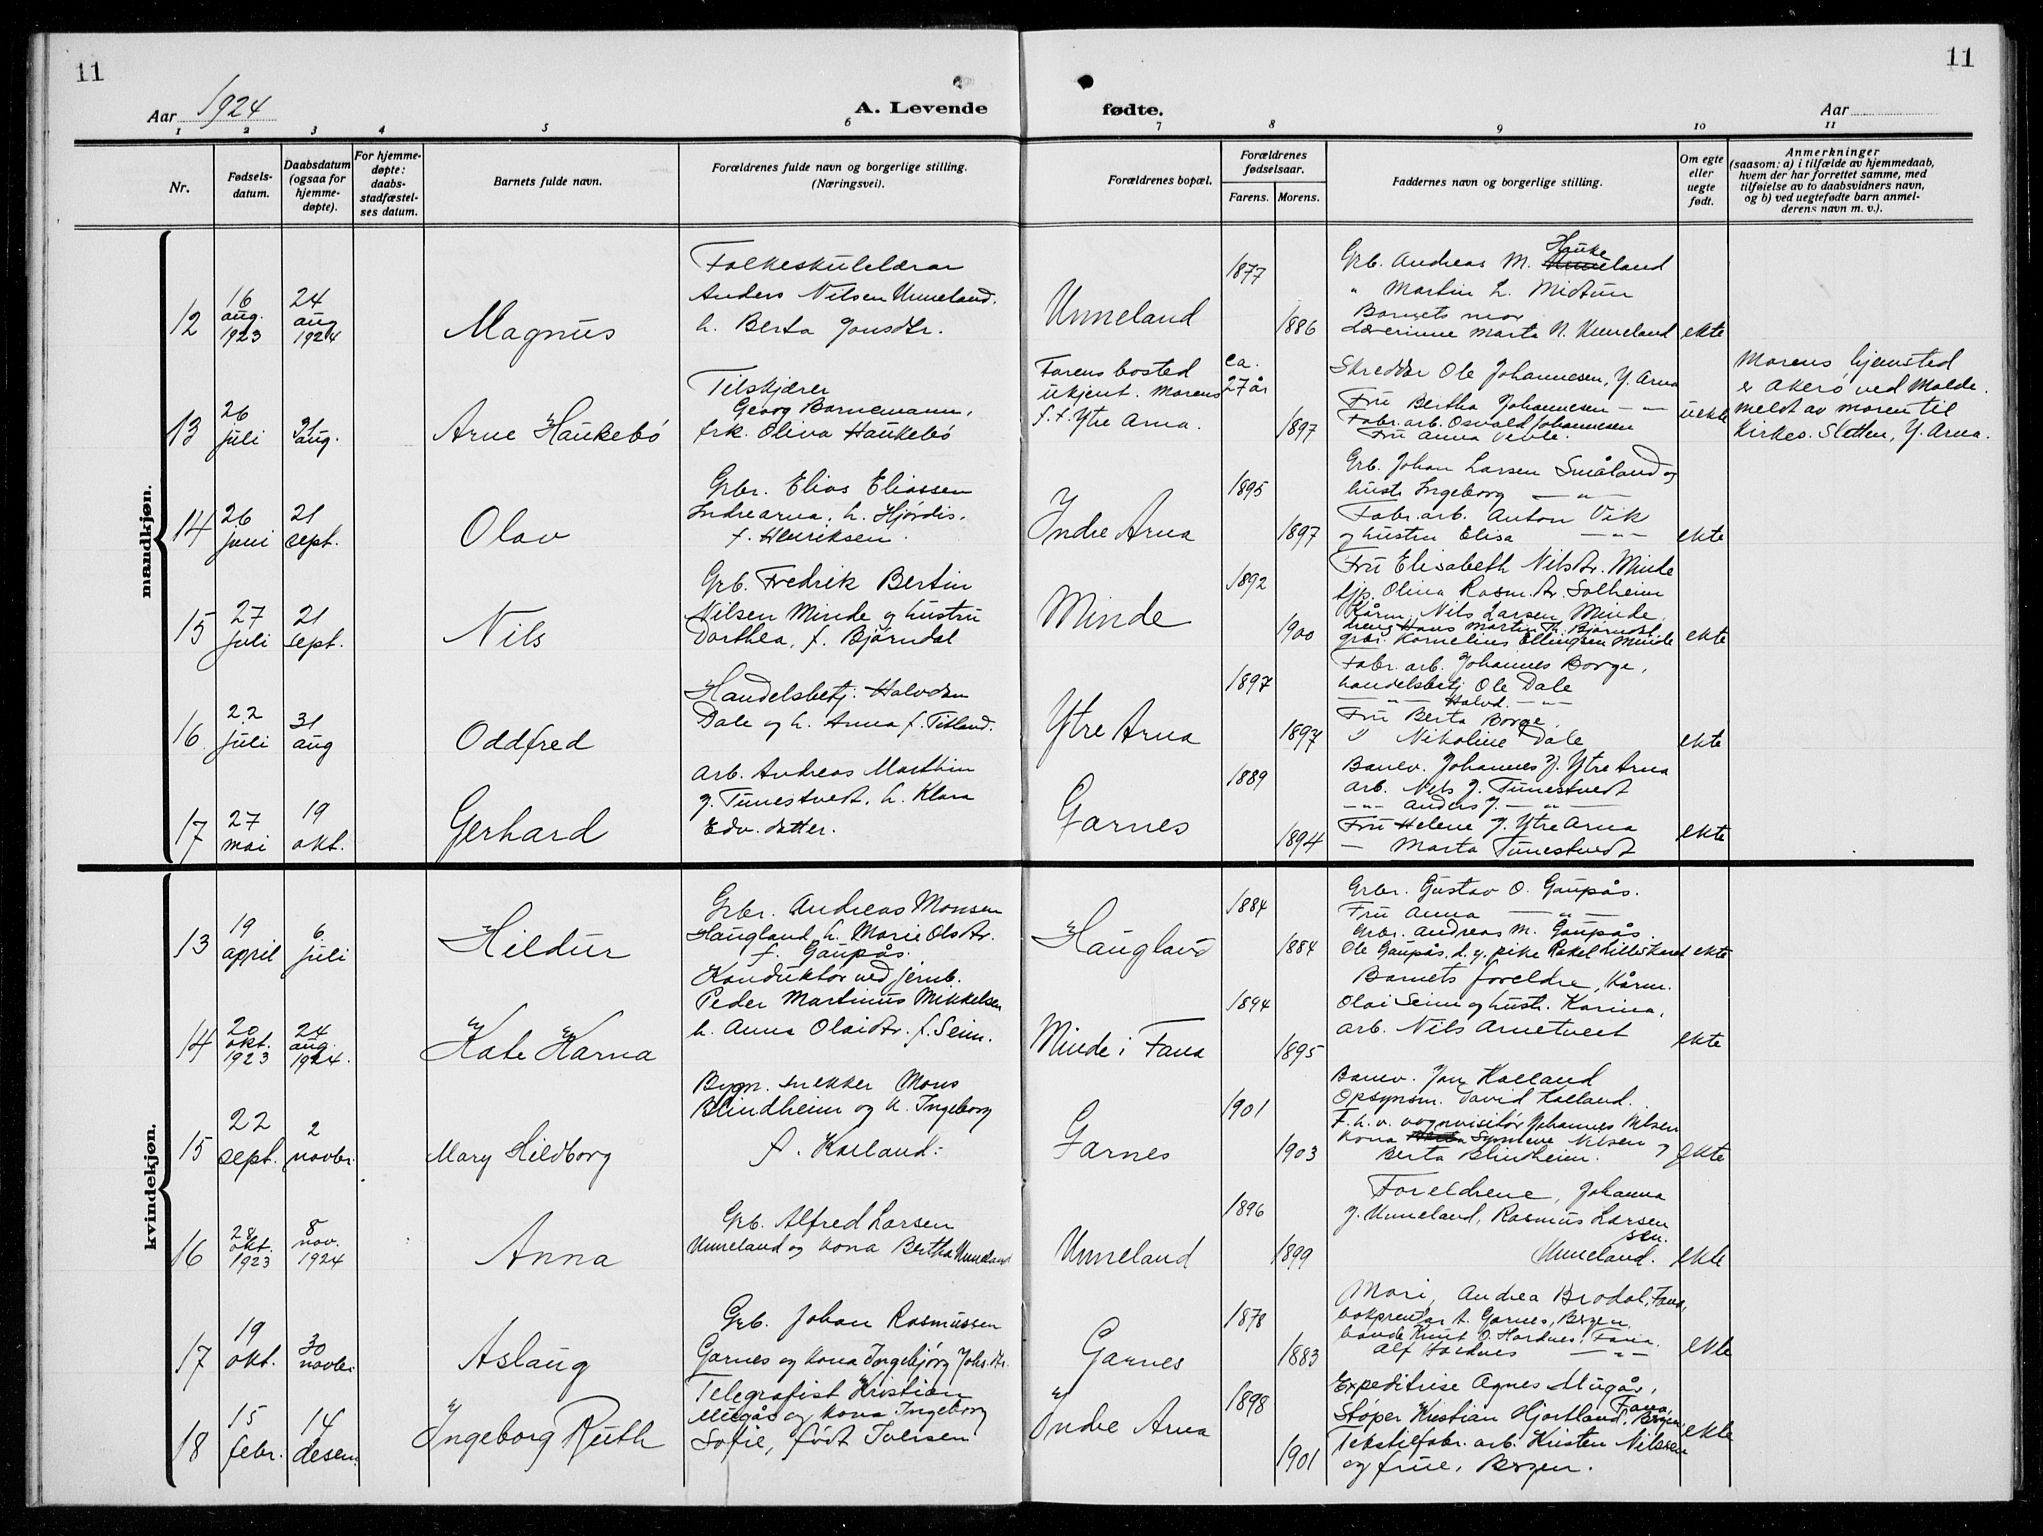 11
11
Aar 1924
A. Levende
fødte.
Aar
1 2 3 4 5 6 7 8 9 10 11
Nr.
Fødsels-
datum.
Daabsdatum
(ogsaa for
hjemme-
døpte).
For hjemme-
døpte:
daabs-
stadfæstel-
ses datum.
Barnets fulde navn.
Forældrenes fulde navn og borgerlige stilling.
(Næringsvei).
Forældrenes bopæl.
Forældrenes
fødselsaar.
Farens. Morens.
Faddernes navn og borgerlige stilling.
Om egte
eller
uegte
født.
Anmerkninger
(saasom: a) i tilfælde av hjemmedaab,
hvem der har forrettet samme, med
tilføielse av to daabsvidners navn,
og b) ved uegtefødte barn anmel-
derens navn m. v.).
mandkjøn.
12
16
aug.
1923
24
aug
1924
Magnus
Folkeskulelærar
Anders Nilsen Unneland.
h. Berta Jonsdtr.
Unneland
1877
1886
Grb. Andreas M. Haukeland
" Martin L. Midtun
Barnets mor
Lærerinne Marta N. Unneland
ekte
13
26
juli
31
aug.
Arne Haukebó
Tilskjærer
Georg Bornemann,
frk. Oliva Haukebó
Farens bosted
ukjent. Morens
f. t. Ytre Arna.
ca.
27 år
1897
Skredder Ole Johannesen, Y. Arna
Fru Bertha Johannesen — " —
Fabr. arb. Osvald Johannesen
Fru Anna
uekte
Morens hjemstad
er Akerø ved Molde.
meldt av moren til
Kirkes. Sletten, Y. Arna.
14
26
juni
21
sept.
Olav
Grbr. Elias Eliassen
Indrearna, h. Hjørdis,
f. Henriksen.
Indre Arna
1895
1897
Grb. Johan Larsen Småland og
hustr. Ingeborg — " —
Fabr. arb. Anton Vik
og hustru Elisa — " —
ekte
15
27
juli
21
sept.
Nils
Grb. Fredrik Bertin
Nilsen Minde og hustru
Dorthea, f. Bjørndal
Minde
1892
1900
Fru Elisabeth Nilsdtr. Minde
Olina Rasm. dtr. Solheim
Kårm. Nils Larsen Minde
dreng Hans Martin Bjørndal
grbr. Kornelius Ellingsen Minde
ekte
16
22
juli
31
aug
Oddfred
Handelsbetj. Halvdan
Dale og h. Anna f. Titland.
Ytre Arna
1897
1897
Fabr. arb. Johannes Borge,
handelsbetj Ole Dale
— " — Halvd. — " —
Fru Berta Borge.
" Nikoline Dale
ekte
17
27
mai
19
okt.
Gerhard
Arb. Andreas Marthin
J. Tunestvedt, h. Klara
Edv. datter.
Garnes
1889
1894
Banev. Johannes J. Ytre Arna
arb. Nils J. Tunestvedt
— " — Anders J. — " —
Fru Helene J. Ytre Arna
— Marta Tunestvedt
ekte
kvindekjøn.
13
19
april
6
juli
Hildur
Grbr. Andreas Monsen
Haugland, h. Marie Olsdtr.
f. Gaupås.
Haugland
1884
1884
Grbr. Gustav O. Gaupås.
Fru Anna — " —
Grbr. Andreas M. Gaupås.
Ole Gaupås. d. y. pike Rakel Lilleskaret
ekte
14
20
okt.
1923
24
aug.
1924.
Kate Karna
Konduktør ved jernb.
Peder Martinus Mikkelsen
h. Anna Olaidtr. f. Seim.
Minde i Fana
1894
1895
Barnets foreldre, Kårm.
Olai Seim og hustr. Karina,
arb. Nils Arnetveit
ekte
15
22
sept.
2
novbr.
Mary Hildborg
Bygn. snekker Mons
Blindheim og h. Ingeborg
f. Kalland.
Garnes
1901
1903
Banev. Jon Kalland
Opsynsm. David Kalland.
F. h. v. vognvisitør Johannes Nilsen
kona Synneve Nilsen og
Berta Blindheim.
Ekte
16
28
okt.
1923
8
nov.
1924
Anna
Grb. Alfred Larsen
Unneland og kona Bertha Unneland
Unneland
1896
1899
Foreldrene, Johanna
J. Unneland, Rasmus Larsen
Unneland.
ekte
17
19
okt.
30
novbr.
Aslaug
Grb. Johan Rasmussen
Garnes og kona Ingebjørg Johs. dtr.
Garnes
1878
1883
Mori, Andrea Brodal, Fana,
bokprentar A. Garnes, Bergen
bonde Knut O. Hordnes, Fana.
Alf Hordnes — " —
ekte
18
15
febr.
14
desem.
Ingeborg Ruth
Telegrafist Kristian
Mugås og kona Ingeborg
Sofie, født Iversen
Indre Arna
1898
1901
Expeditrise Agnes Mugås,
Fana,
Støper Kristian Hjortland, Bergen,
Tekstilfabr. arb. Kristen Nilssen
og frue, Bergen.
ekte